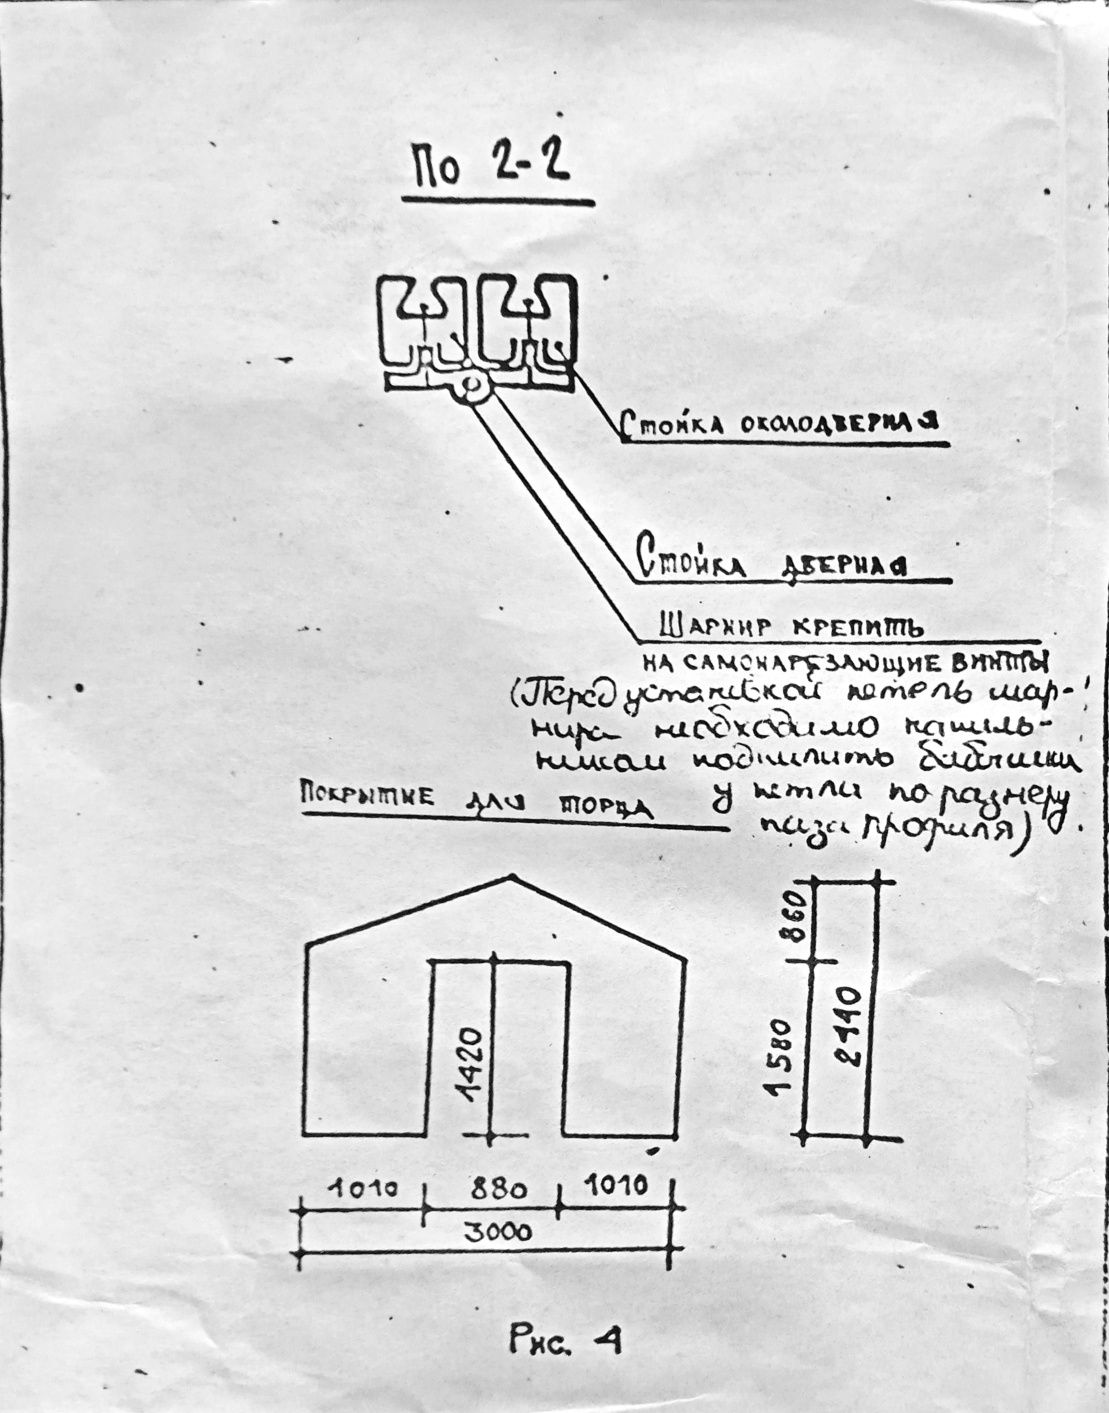 По 2-2
Стойка околодверная
Стойка дверная
Шарнир крепить
на самонарезающие винты
(Перед установкой петель шар-
нира необходимо напиль-
ником подпилить бабышки
у петли по размеру
паза профиля)
Покрытие для торца
860
1580
2440
1420
1010 880 1010
3000
Рис. 4